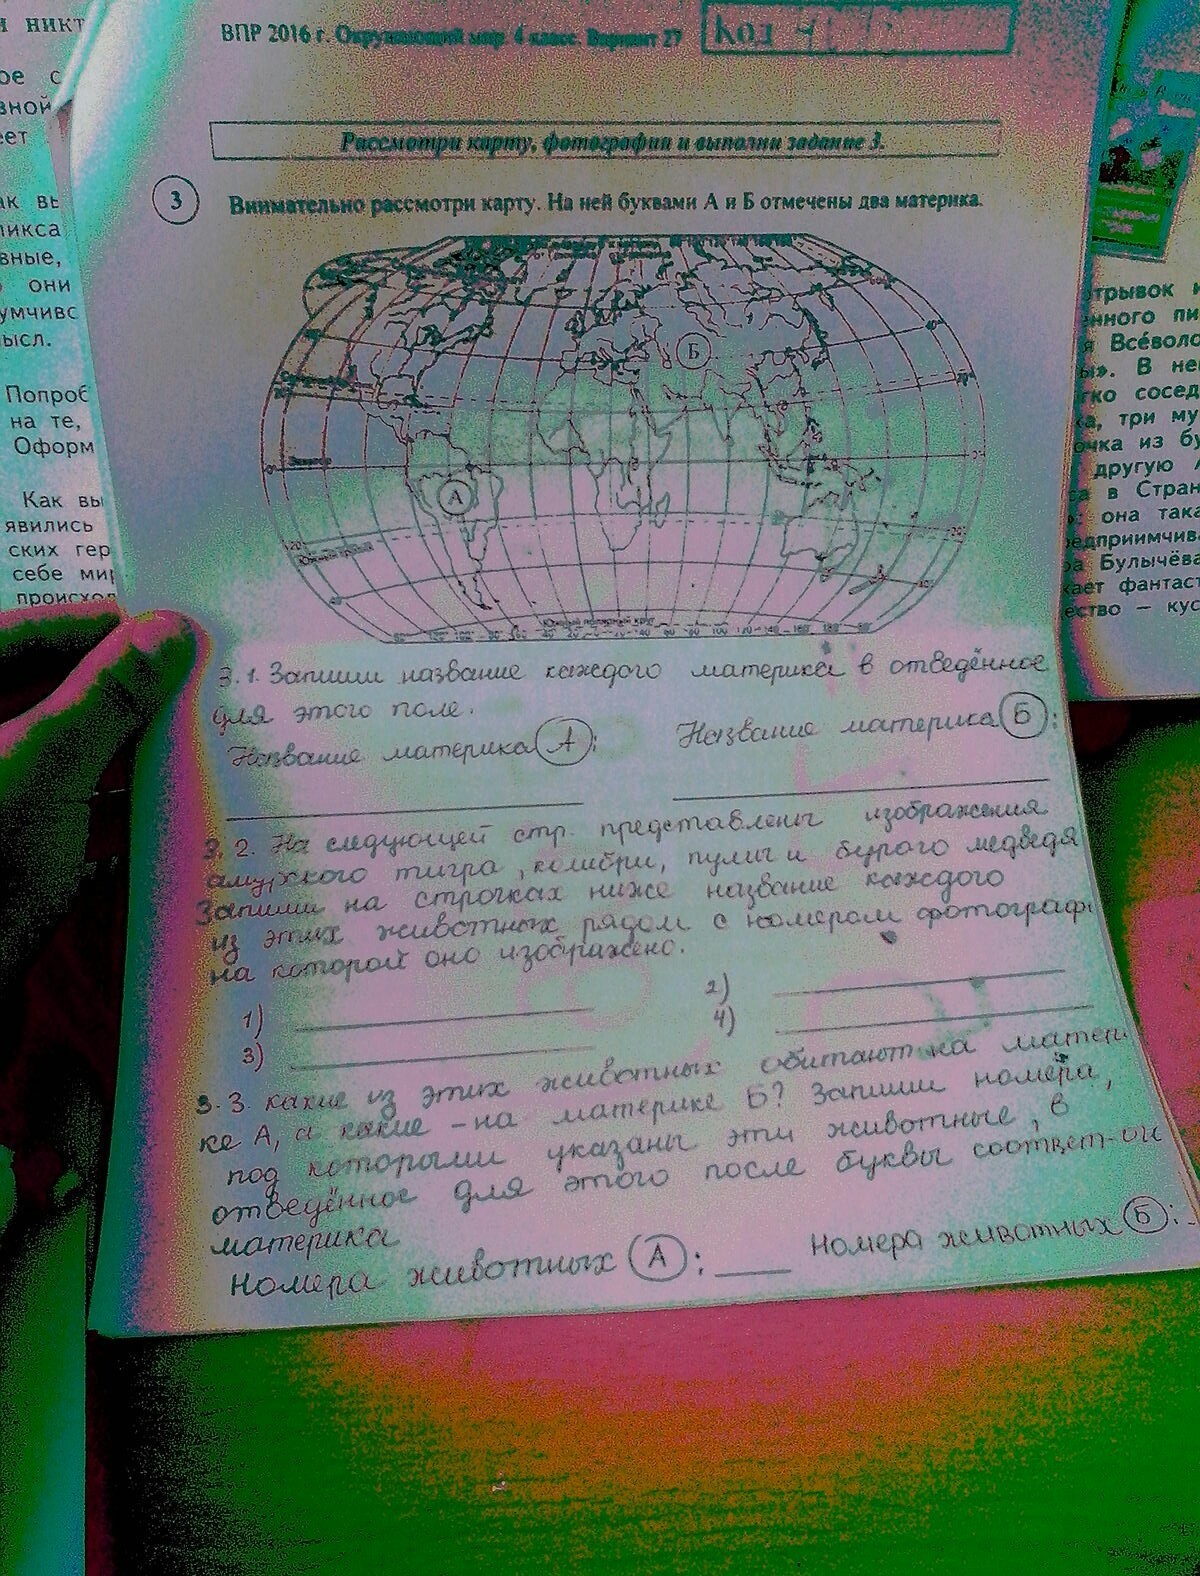 и никт
ое с
вной
еет
ак вы
пикса
вные,
они
умчивс
ысл.
Попроб
на те,
Оформ
Как вы
явились
ских гер
себе мир
происход
ВПР 2016 г. Окружающий мир. 4 класс. Вариант 27
Код 4
Рассмотри карту, фотографии и выполни задание 3.
3 Внимательно рассмотри карту. На ней буквами А и Б отмечены два материка.
Б
А
Южный полярный круг
3.1. Запиши название каждого материка в отведённое
для этого поле.
Название материка А: Название материка Б:
3.2. На следующей стр. представлены изображения
амурского тигра, колибри, пумы и бурого медведя
Запиши на строчках ниже название каждого
из этих животных рядом с номером фотографи
на которой оно изображено.
1) 2)
3) 4)
3.3. какие из этих животных обитают на матери
ке А, а какие - на материке Б? Запиши номера,
под которыми указаны эти животные, в
отведённое для этого после буквы соответ-ог
материка
Номера животных А: Номера животных Б:
трывок и
нного пи
я Всéволо
ы». В не
гко сосед
ка, три му
очка из бу
другую
са в Стран
она така
едприимчива
ра Булычёва
кает фантаст
ество — кус